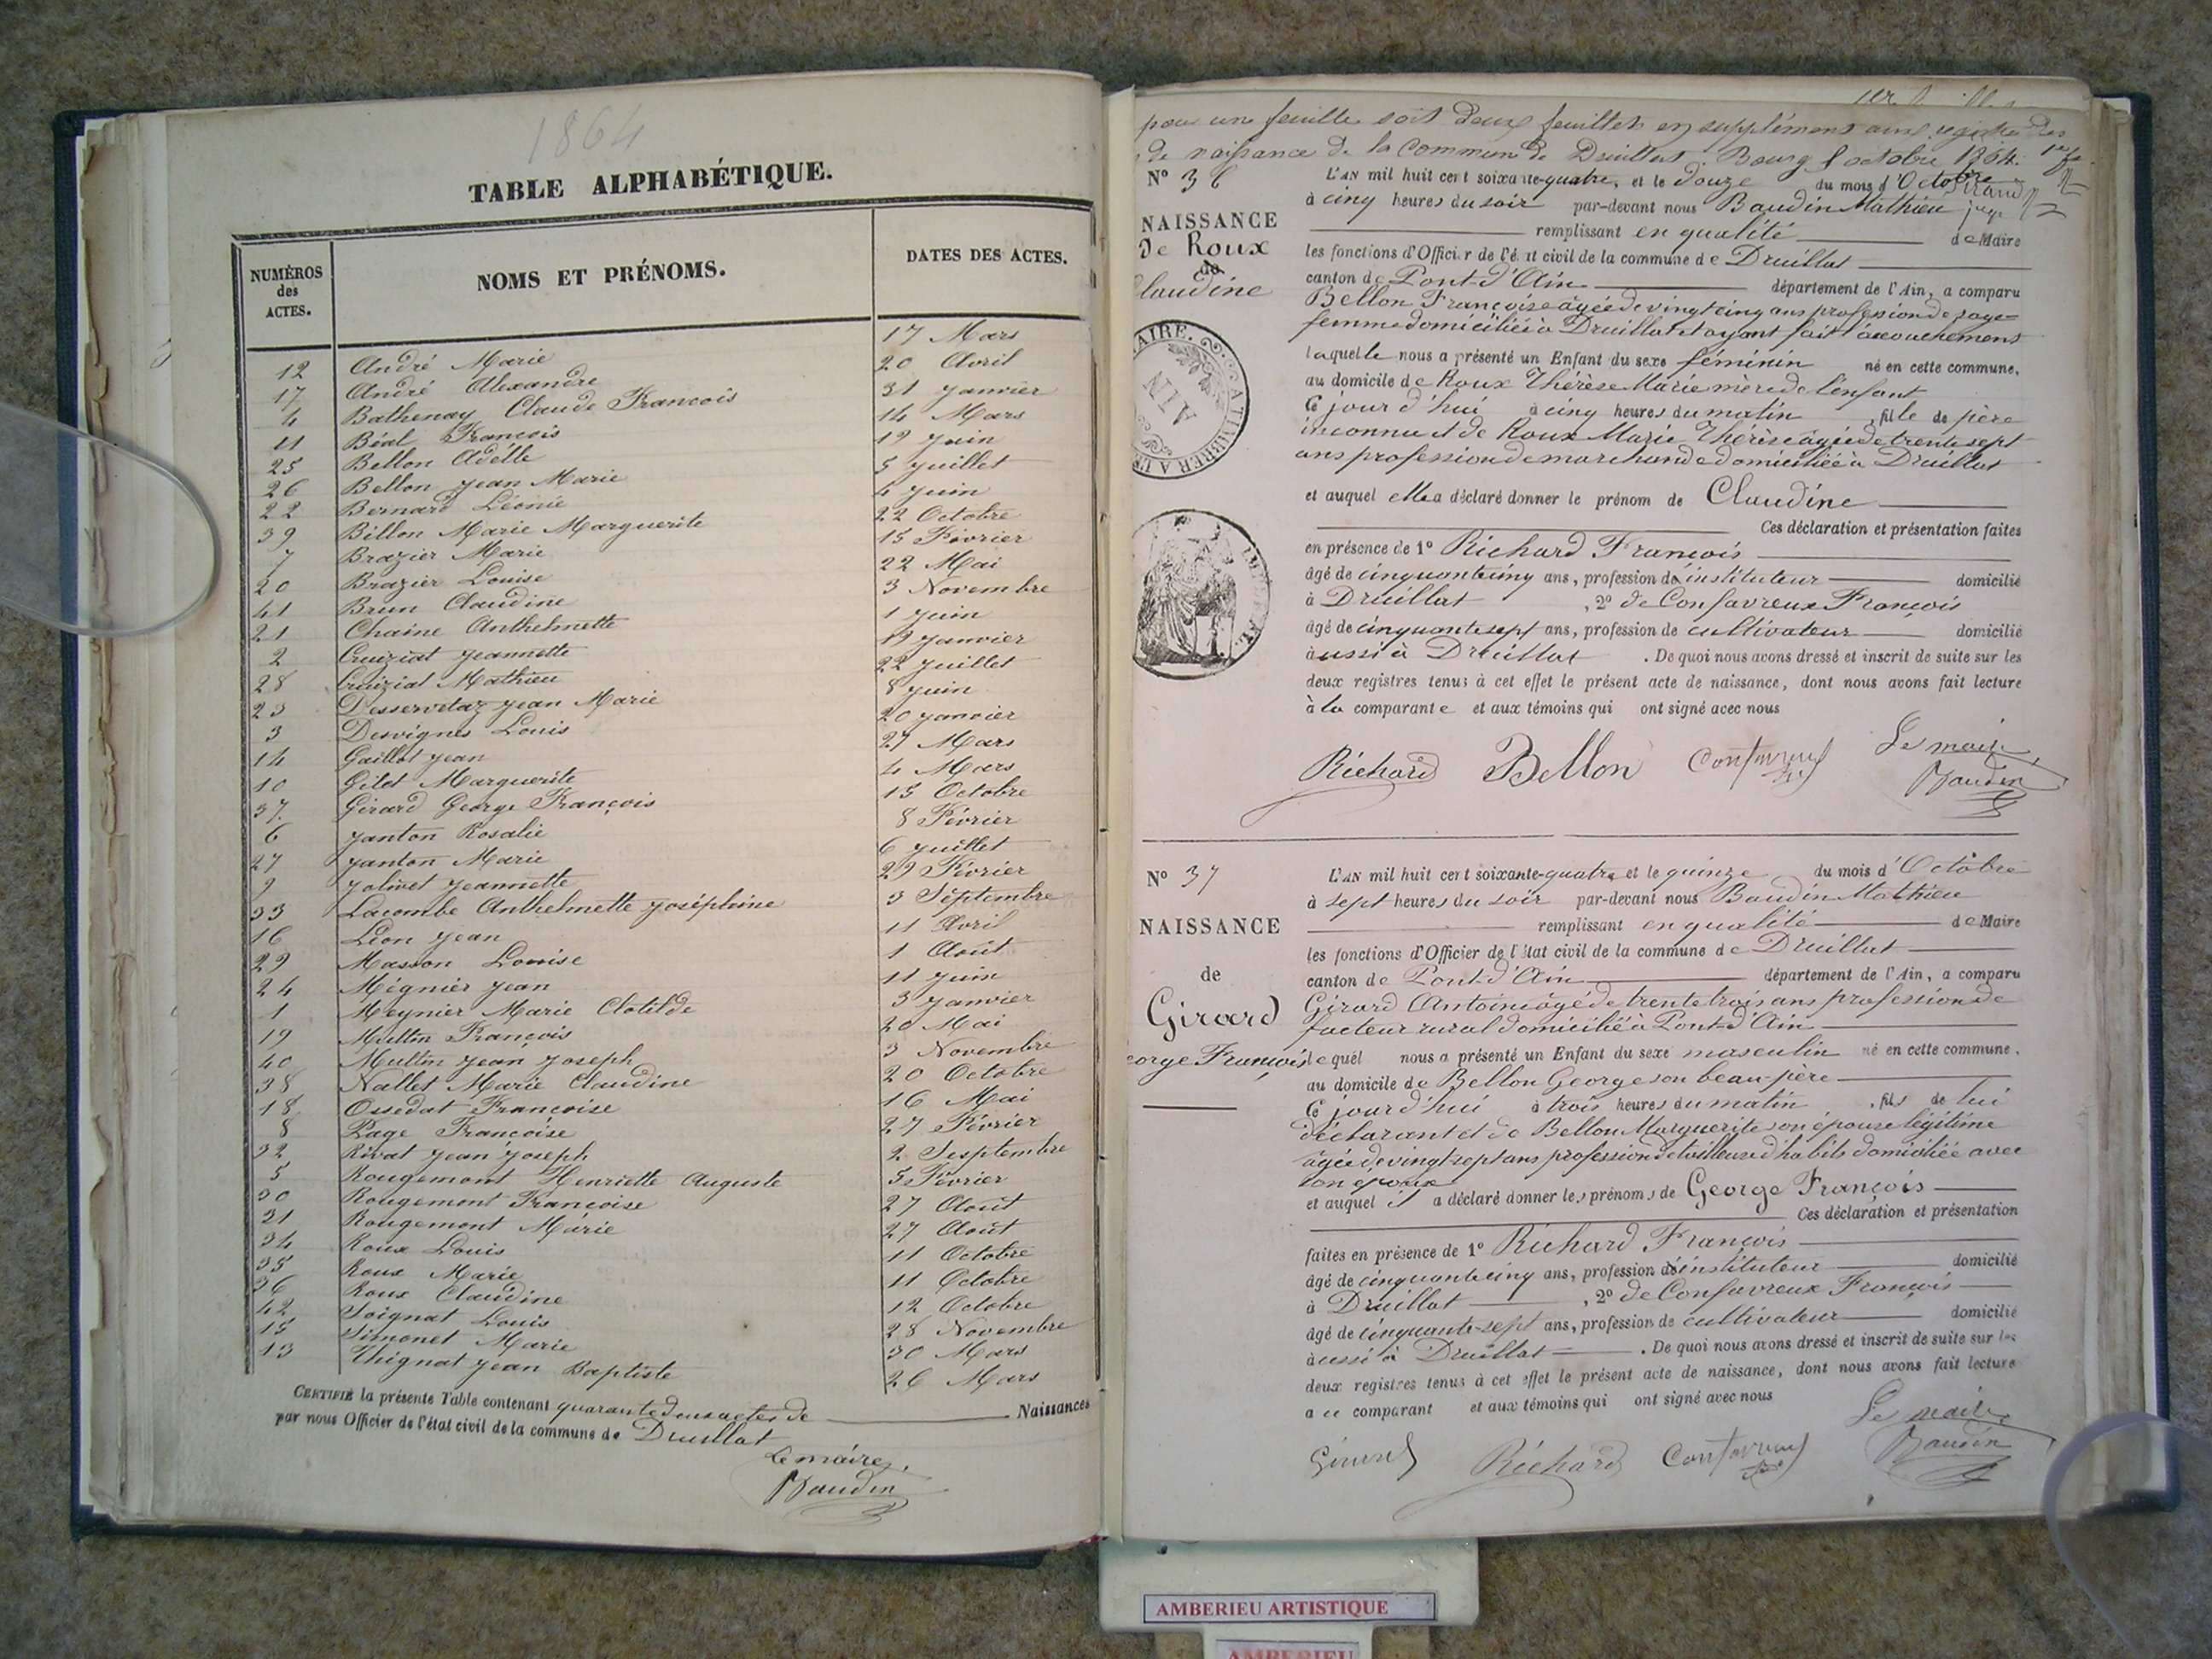 1864
TABLE ALPHABÉTIQUE.
NUMÉROS des ACTES.
NOMS ET PRÉNOMS.
DATES DES ACTES.
12 André Marie 17 Mars
17 André Alexandre 20 Avril
4 Bathenay Claude François 31 Janvier
11 Béal François 14 Mars
25 Bellon Adelle 19 Juin
26 Bellon Jean Marie 5 Juillet
22 Bernard Léonie 4 Juin
39 Billon Marie Marguerite 22 Octobre
7 Brazier Marie 15 Février
20 Brazier Louise 22 Mai
41 Brun Claudine 3 Novembre
21 Chaine Anthelmette 1 Juin
2 Cruiziat Jeannette 19 Janvier
28 Cruiziat Mathieu 22 Juillet
23 Desservetaz Jean Marie 8 Juin
3 Desvignes Louis 20 Janvier
14 Gaillot Jean 27 Mars
10 Gilet Marguerite 4 Mars
37. Girard George François 15 Octobre
6 Janton Rosalie 8 Février
27 Janton Marie 6 Juillet
9 Jolivet Jeannette 29 Février
33 Lacombe Anthelmette Joséphine 3 Septembre
16 Léon Jean 11 Avril
29 Masson Louise 1 Août
24 Mégnier Jean 11 Juin
1 Meynier Marie Clotilde 3 Janvier
19 Multin François 20 Mai
40 Multin Jean Joseph 3 Novembre
38 Nallet Marie Claudine 20 Octobre
18 Ossedat Françoise 16 Mai
8 Page Françoise 27 Février
32 Rivat Jean Joseph 2 Sesptembre
5 Rougemont Henriette Auguste 5 Février
30 Rougemont Françoise 27 Août
31 Rougemont Marie 27 Août
34 Roux Louis 11 Octobre
35 Roux Marie 11 Octobre
36 Roux Claudine 12 Octobre
42 Soignat Louis 28 Novembre
15 Simonet Marie 30 Mars
13 Thignat Jean Baptiste 26 Mars
CERTIFIÉ la présente Table contenant quarante deux actes de Naissances
par nous Officier de l'état civil de la commune de Druillat
Le maire,
Baudin
pour une feuille soit deux feuillets en supplément aux registre des
de naissance de la commune de Druillat. Bourg 8 octobre 1864.
N° 36
NAISSANCE
de Roux
de
Claudine
L'AN mil huit cent soixante-quatre, et le douze du mois d'Octobre
à cinq heures du soir par-devant nous Baudin Mathieu
remplissant en qualité de Maire
les fonctions d'Officier de l'état civil de la commune de Druillat
canton de Pont-d'Ain département de l'Ain, a comparu
Bellon Françoise âgée de vingt cinq ans profession de sage-
femme domiciliée à Druillat et ayant fait l'accouchement
laquelle nous a présenté un Enfant du sexe féminin né en cette commune,
au domicile de Roux Thérèse Marie mère de l'enfant
Ce jour d'hui à cinq heures du matin, fille de père
inconnu et de Roux Marie Thérèse âgée de trente sept
ans profession de marchande domiciliée à Druillat
et auquel elle a déclaré donner le prénom de Claudine
Ces déclaration et présentation faites
en présence de 1° Richard François
âgé de cinquante cinq ans, profession d'instituteur domicilié
à Druillat, 2° de Confavreux François
âgé de cinquante sept ans, profession de cultivateur domicilié
aussi à Druillat. De quoi nous avons dressé et inscrit de suite sur les
deux registres tenus à cet effet le présent acte de naissance, dont nous avons fait lecture
à la comparante et aux témoins qui ont signé avec nous
Richard Bellon Confavreux Le maire
Baudin
AIN
N° 37
NAISSANCE
de
Girard
George François
L'AN mil huit cent soixante-quatre et le quinze du mois d'Octobre
à sept heures du soir par-devant nous Baudin Mathieu
remplissant en qualité de Maire
les fonctions d'Officier de l'état civil de la commune de Druillat
canton de Pont-d'Ain département de l'Ain, a comparu
Girard Antoine âgé de trente trois ans profession de
facteur rural domicilié à Pont-d'Ain
lequel nous a présenté un Enfant du sexe masculin né en cette commune,
au domicile de Bellon George son beau-père
Ce jour d'hui à trois heures du matin, fils de lui
déclarant et de Bellon Marguerite son épouse légitime
âgée de vingt sept ans profession de tailleuse d'habits domiciliée avec
son époux
et auquel il a déclaré donner les prénoms de George François
Ces déclaration et présentation
faites en présence de 1° Richard François
âgé de cinquante cinq ans, profession d'instituteur domicilié
à Druillat, 2° de Confavreux François
âgé de cinquante-sept ans, profession de cultivateur domicilié
aussi à Druillat. De quoi nous avons dressé et inscrit de suite sur les
deux registres tenus à cet effet le présent acte de naissance, dont nous avons fait lecture
a ce comparant et aux témoins qui ont signé avec nous
Girard Richard Confavreux Le maire
Baudin
AMBERIEU ARTISTIQUE
AMBERIEU